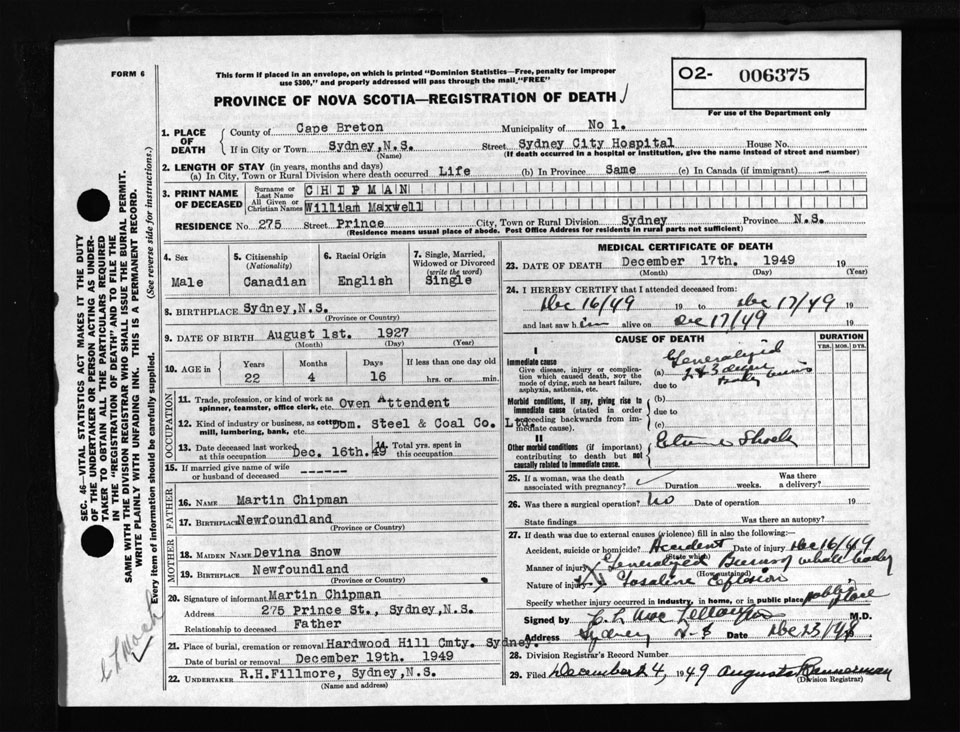 FORM 6
This form if placed in an envelope, on which is printed "Dominion Statistics—Free, penalty for improper
use $300," and properly addressed will pass through the mail "FREE"
O2- 006375
For use of the Department only
PROVINCE OF NOVA SCOTIA—REGISTRATION OF DEATH
1. PLACE OF DEATH
County of Cape Breton Municipality of No 1.
If in City or Town Sydney, N.S. Street Sydney City Hospital House No.
(Name) (If death occurred in a hospital or institution, give the name instead of street and number)
2. LENGTH OF STAY (in years, months and days)
(a) In City, Town or Rural Division where death occurred Life (b) In Province Same (c) In Canada (if immigrant)
3. PRINT NAME OF DECEASED
Surname or Last Name CHIPMAN
All Given or Christian Names William Maxwell
RESIDENCE No. 275 Street Prince City, Town or Rural Division Sydney Province N.S.
(Residence means usual place of abode. Post Office Address for residents in rural parts not sufficient)
4. Sex
Male
5. Citizenship
(Nationality)
Canadian
6. Racial Origin
English
7. Single, Married,
Widowed or Divorced
(write the word)
Single
8. BIRTHPLACE Sydney, N.S.
(Province or Country)
9. DATE OF BIRTH August 1st. 1927
(Month) (Day) (Year)
10. AGE in Years Months Days If less than one day old
22 4 16 hrs. or min.
OCCUPATION
11. Trade, profession, or kind of work as
spinner, teamster, office clerk, etc. Oven Attendent
12. Kind of industry or business, as cotton
mill, lumbering, bank, etc. Dom. Steel & Coal Co. Ltd.
13. Date deceased last worked
at this occupation Dec. 16th. 49
14. Total yrs. spent in
this occupation
15. If married give name of wife
or husband of deceased ------
FATHER
16. NAME Martin Chipman
17. BIRTHPLACE Newfoundland
(Province or Country)
MOTHER
18. MAIDEN NAME Devina Snow
19. BIRTHPLACE Newfoundland
(Province or Country)
20. Signature of informant Martin Chipman
Address 275 Prince St., Sydney, N.S.
Relationship to deceased Father
21. Place of burial, cremation or removal Hardwood Hill Cmty. Sydney.
Date of burial or removal December 19th. 1949
22. UNDERTAKER R.H.Fillmore, Sydney, N.S.
(Name and address)
MEDICAL CERTIFICATE OF DEATH
23. DATE OF DEATH December 17th. 1949 19
(Month) (Day) (Year)
24. I HEREBY CERTIFY that I attended deceased from:
Dec 16/49 19 to Dec 17/49 19
and last saw him alive on Dec 17/49 19
CAUSE OF DEATH
DURATION
YRS. MOS. DYS.
I
Immediate cause
Give disease, injury or complication
which caused death, not the
mode of dying, such as heart failure,
asphyxia, asthenia, etc.
(a) Generalized
2 & 3 degree
body burns
due to
Morbid conditions, if any, giving rise to
immediate cause (stated in order
proceeding backwards from immediate
cause).
(b)
due to
(c)
II
Other morbid conditions (if important)
contributing to death but not
causally related to immediate cause.
Shock
25. If a woman, was the death
associated with pregnancy? Duration weeks. Was there
a delivery?
26. Was there a surgical operation? No Date of operation 19
State findings Was there an autopsy?
27. If death was due to external causes (violence) fill in also the following:
Accident, suicide or homicide? Accident Date of injury Dec 16/49
(State which)
Manner of injury Generalized Burns of whole body
(How sustained)
Nature of injury Gasoline Explosion
Specify whether injury occurred in industry, in home, or in public place public place
Signed by M.D.
Address Sydney N-S Date Dec 23/
28. Division Registrar's Record Number
29. Filed December 24, 1949 Bannerman
(Division Registrar)
SEC. 46—VITAL STATISTICS ACT MAKES IT THE DUTY
OF THE UNDERTAKER OR PERSON ACTING AS UNDERTAKER
TO OBTAIN ALL THE PARTICULARS REQUIRED
IN THE "REGISTRATION OF DEATH" AND TO FILE THE
SAME WITH THE DIVISION REGISTRAR WHO SHALL ISSUE THE BURIAL PERMIT.
WRITE PLAINLY WITH UNFADING INK. THIS IS A PERMANENT RECORD.
Every item of information should be carefully supplied. (See reverse side for instructions.)